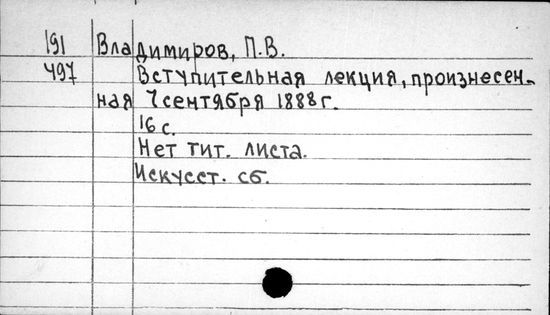 191 Владимиров, П.В.
497 Вступительная лекция, произнесен-
ная 7 сентября 1888 г.
16 с.
Нет тит. листа.
Искусст. сб.